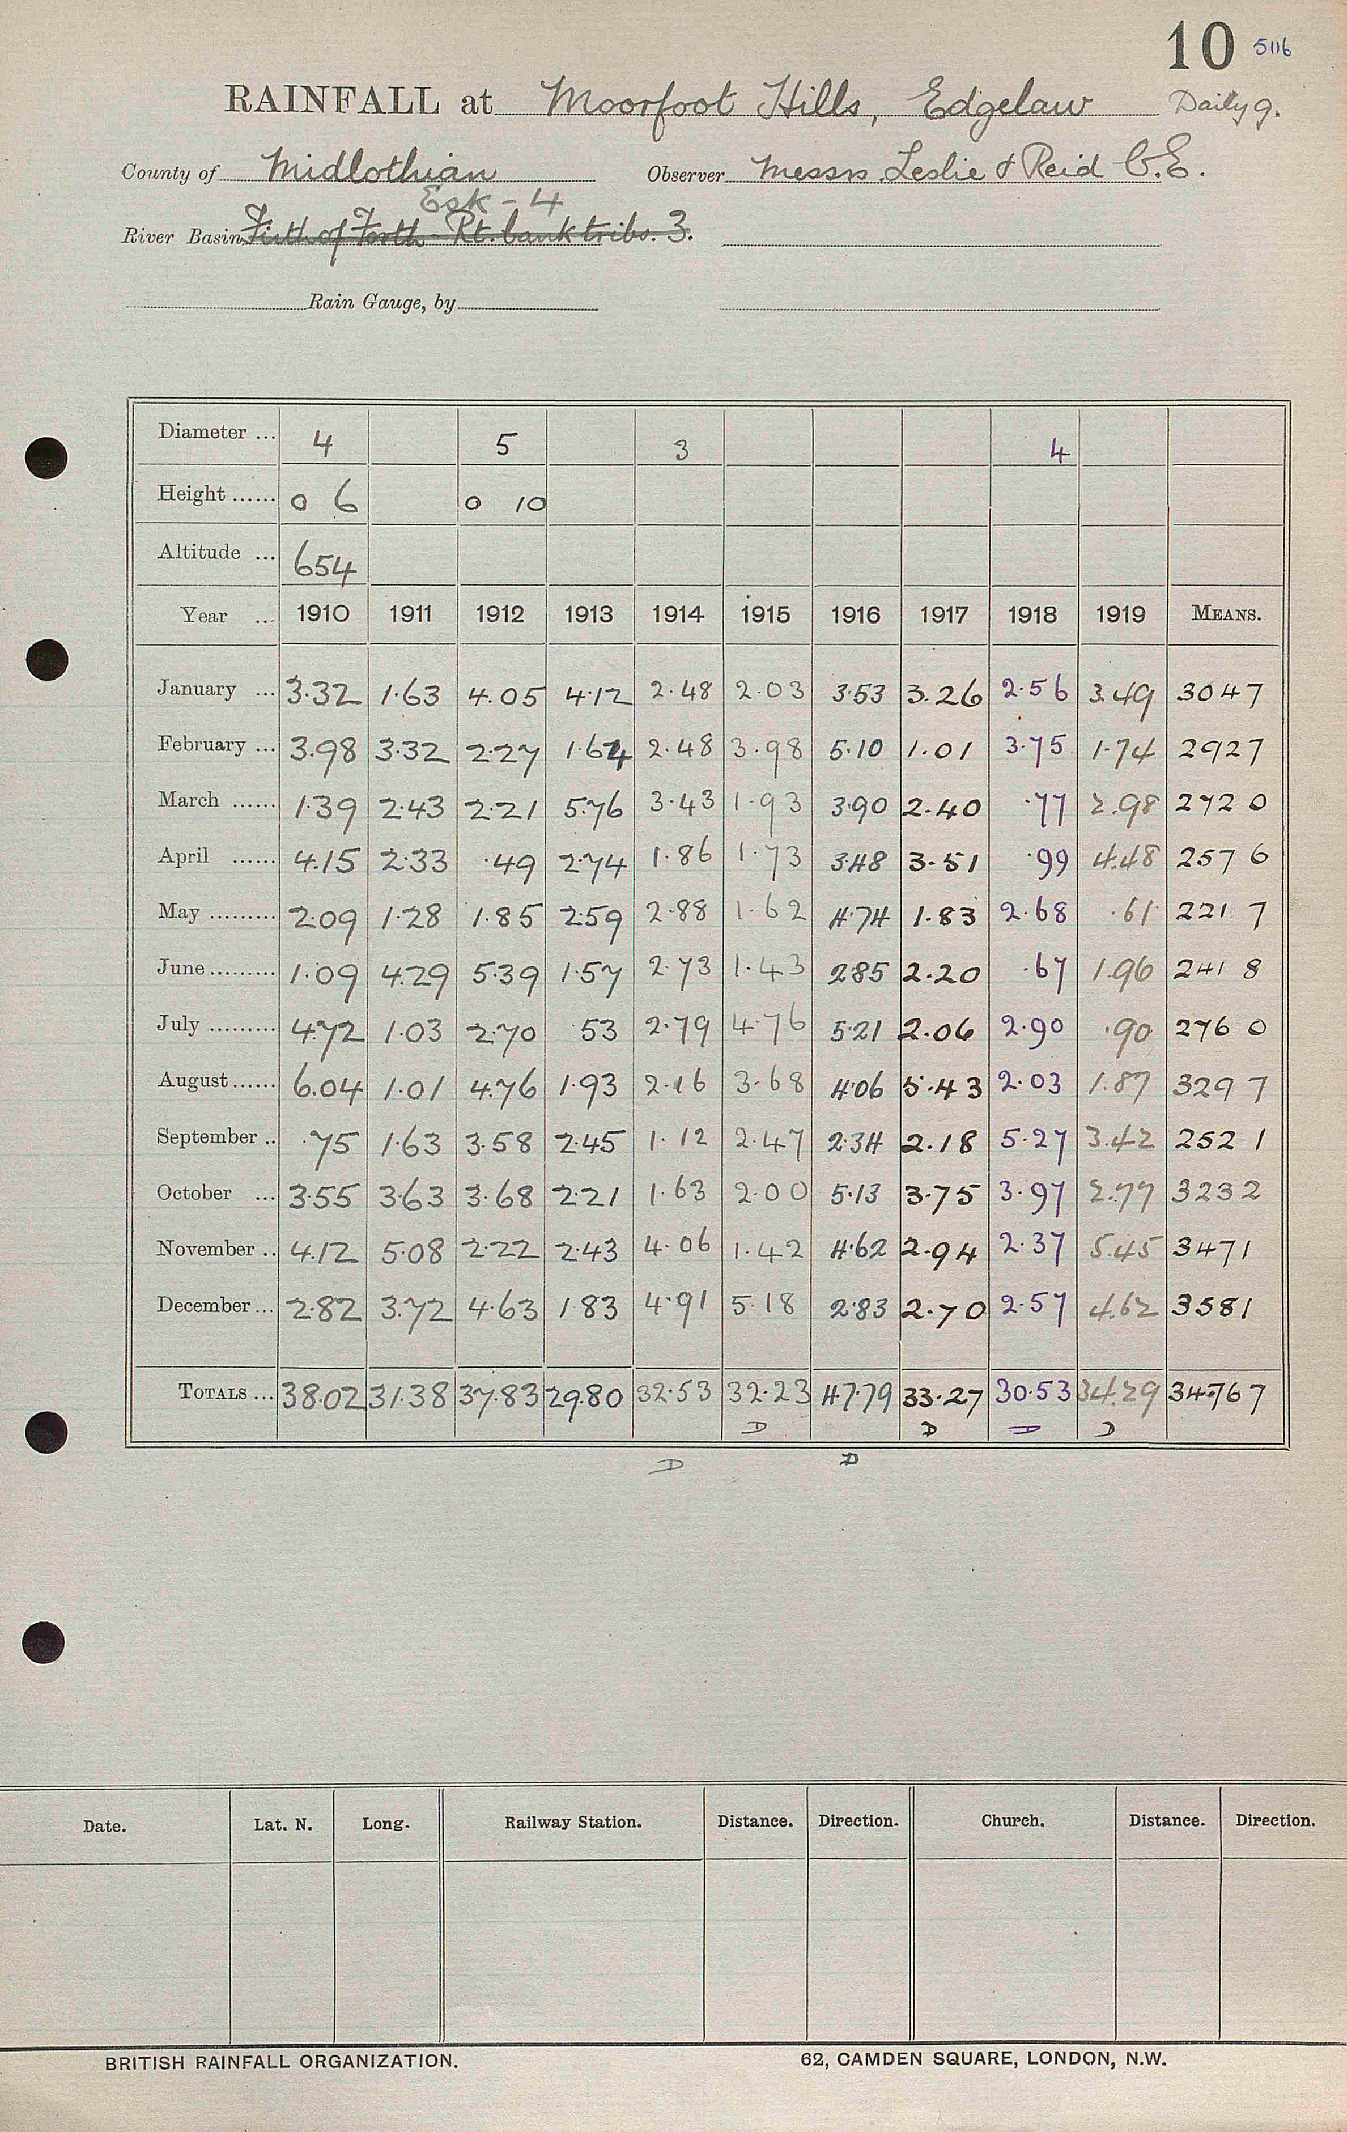 10 506
RAINFALL at Moorfoot Hills, Edgelaw Daily 9.
County of Midlothian Observer Messrs Leslie & Reid C.E.
Esk - 4
River Basin Firth of Forth - Rt. bank tribs. 3.
Rain Gauge, by
Diameter ... 4 5 3 4
Height ...... 0 6 0 10
Altitude ... 654
Year ... 1910 1911 1912 1913 1914 1915 1916 1917 1918 1919 MEANS.
January ... 3.32 1.63 4.05 4.12 2.48 2.03 3.53 3.26 2.56 3.49 3047
February ... 3.98 3.32 2.27 1.64 2.48 3.98 5.10 1.01 3.75 1.74 2927
March ...... 1.39 2.43 2.21 5.76 3.43 1.93 3.90 2.40 .77 2.98 272 0
April ...... 4.15 2.33 .49 2.74 1.86 1.73 3.48 3.51 .99 4.48 257 6
May ......... 2.09 1.28 1.85 2.59 2.88 1.62 4.74 1.83 2.68 .61 221 7
June ......... 1.09 4.29 5.39 1.57 2.73 1.43 2.85 2.20 .67 1.96 241 8
July ......... 4.72 1.03 2.70 .53 2.79 4.76 5.21 2.06 2.90 .90 276 0
August ...... 6.04 1.01 4.76 1.93 2.16 3.68 4.06 5.43 2.03 1.87 329 7
September .. .75 1.63 3.58 2.45 1.12 2.47 2.34 2.18 5.27 3.42 252 1
October ... 3.55 3.63 3.68 2.21 1.63 2.00 5.13 3.75 3.97 2.77 3232
November .. 4.12 5.08 2.22 2.43 4.06 1.42 4.62 2.94 2.37 5.45 3471
December ... 2.82 3.72 4.63 1.83 4.91 5.18 2.83 2.70 2.57 4.62 3581
TOTALS ... 38.02 31.38 37.83 29.80 32.53 32.23 47.79 33.27 30.53 34.29 34.767
D D D D
D D
Date. Lat. N. Long. Railway Station. Distance. Direction. Church. Distance. Direction.
BRITISH RAINFALL ORGANIZATION. 62, CAMDEN SQUARE, LONDON, N.W.